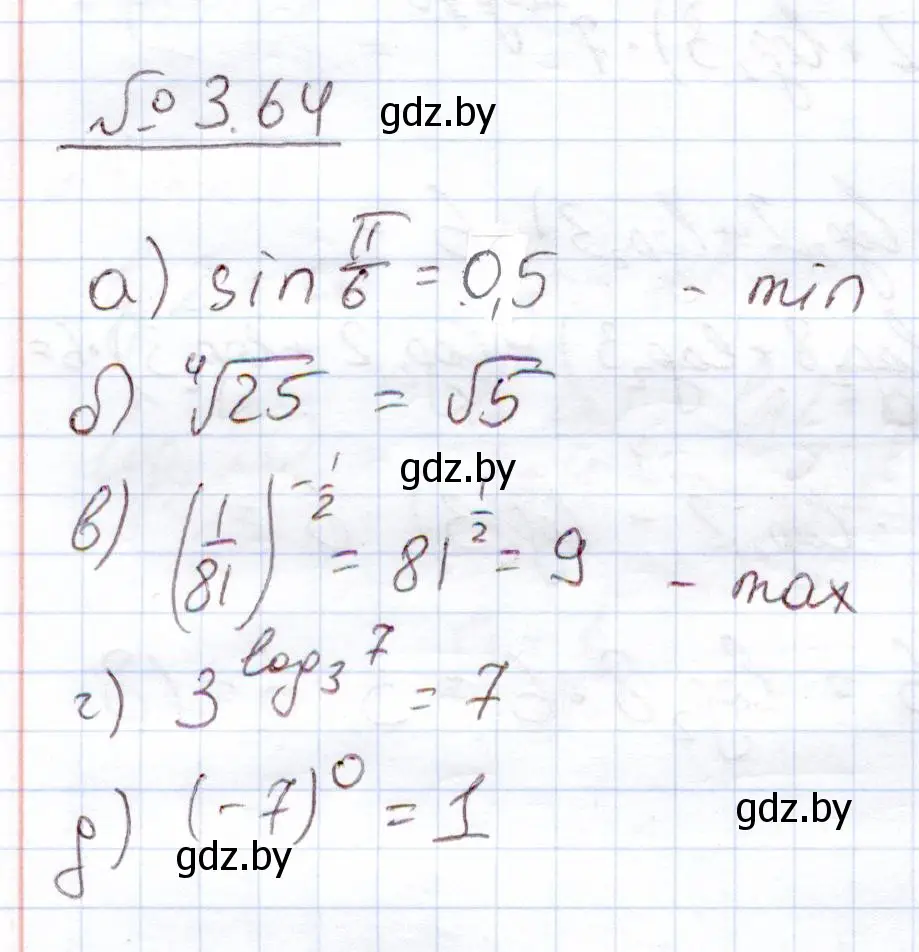 № 3.64 gdz.by
а) sin π/6 = 0,5 - min
б) ⁴√25 = √5
gdz.by
в) (1/81)^(-1/2) = 81^(1/2) = 9 - max
г) 3^(log₃ 7) = 7
д) (-7)^0 = 1
gdz.by
gdz.by